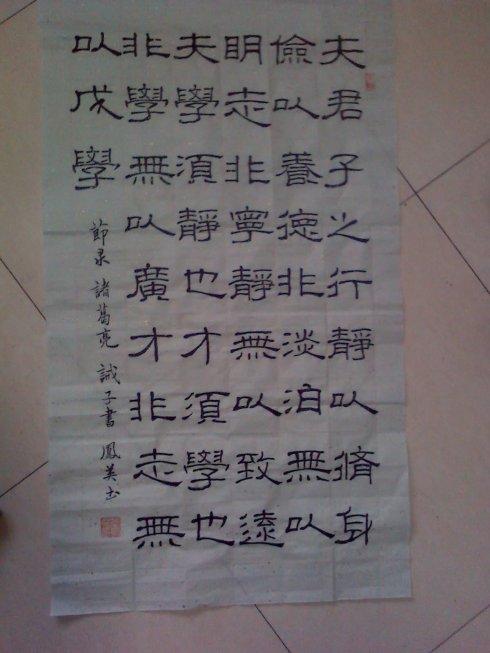 夫君子之行靜以脩身
儉以養德非淡泊無以
明志非寧靜無以致遠
夫學須靜也才須學也
非學無以廣才非志無
以成學
節录 諸葛亮 誡子書 鳳美书